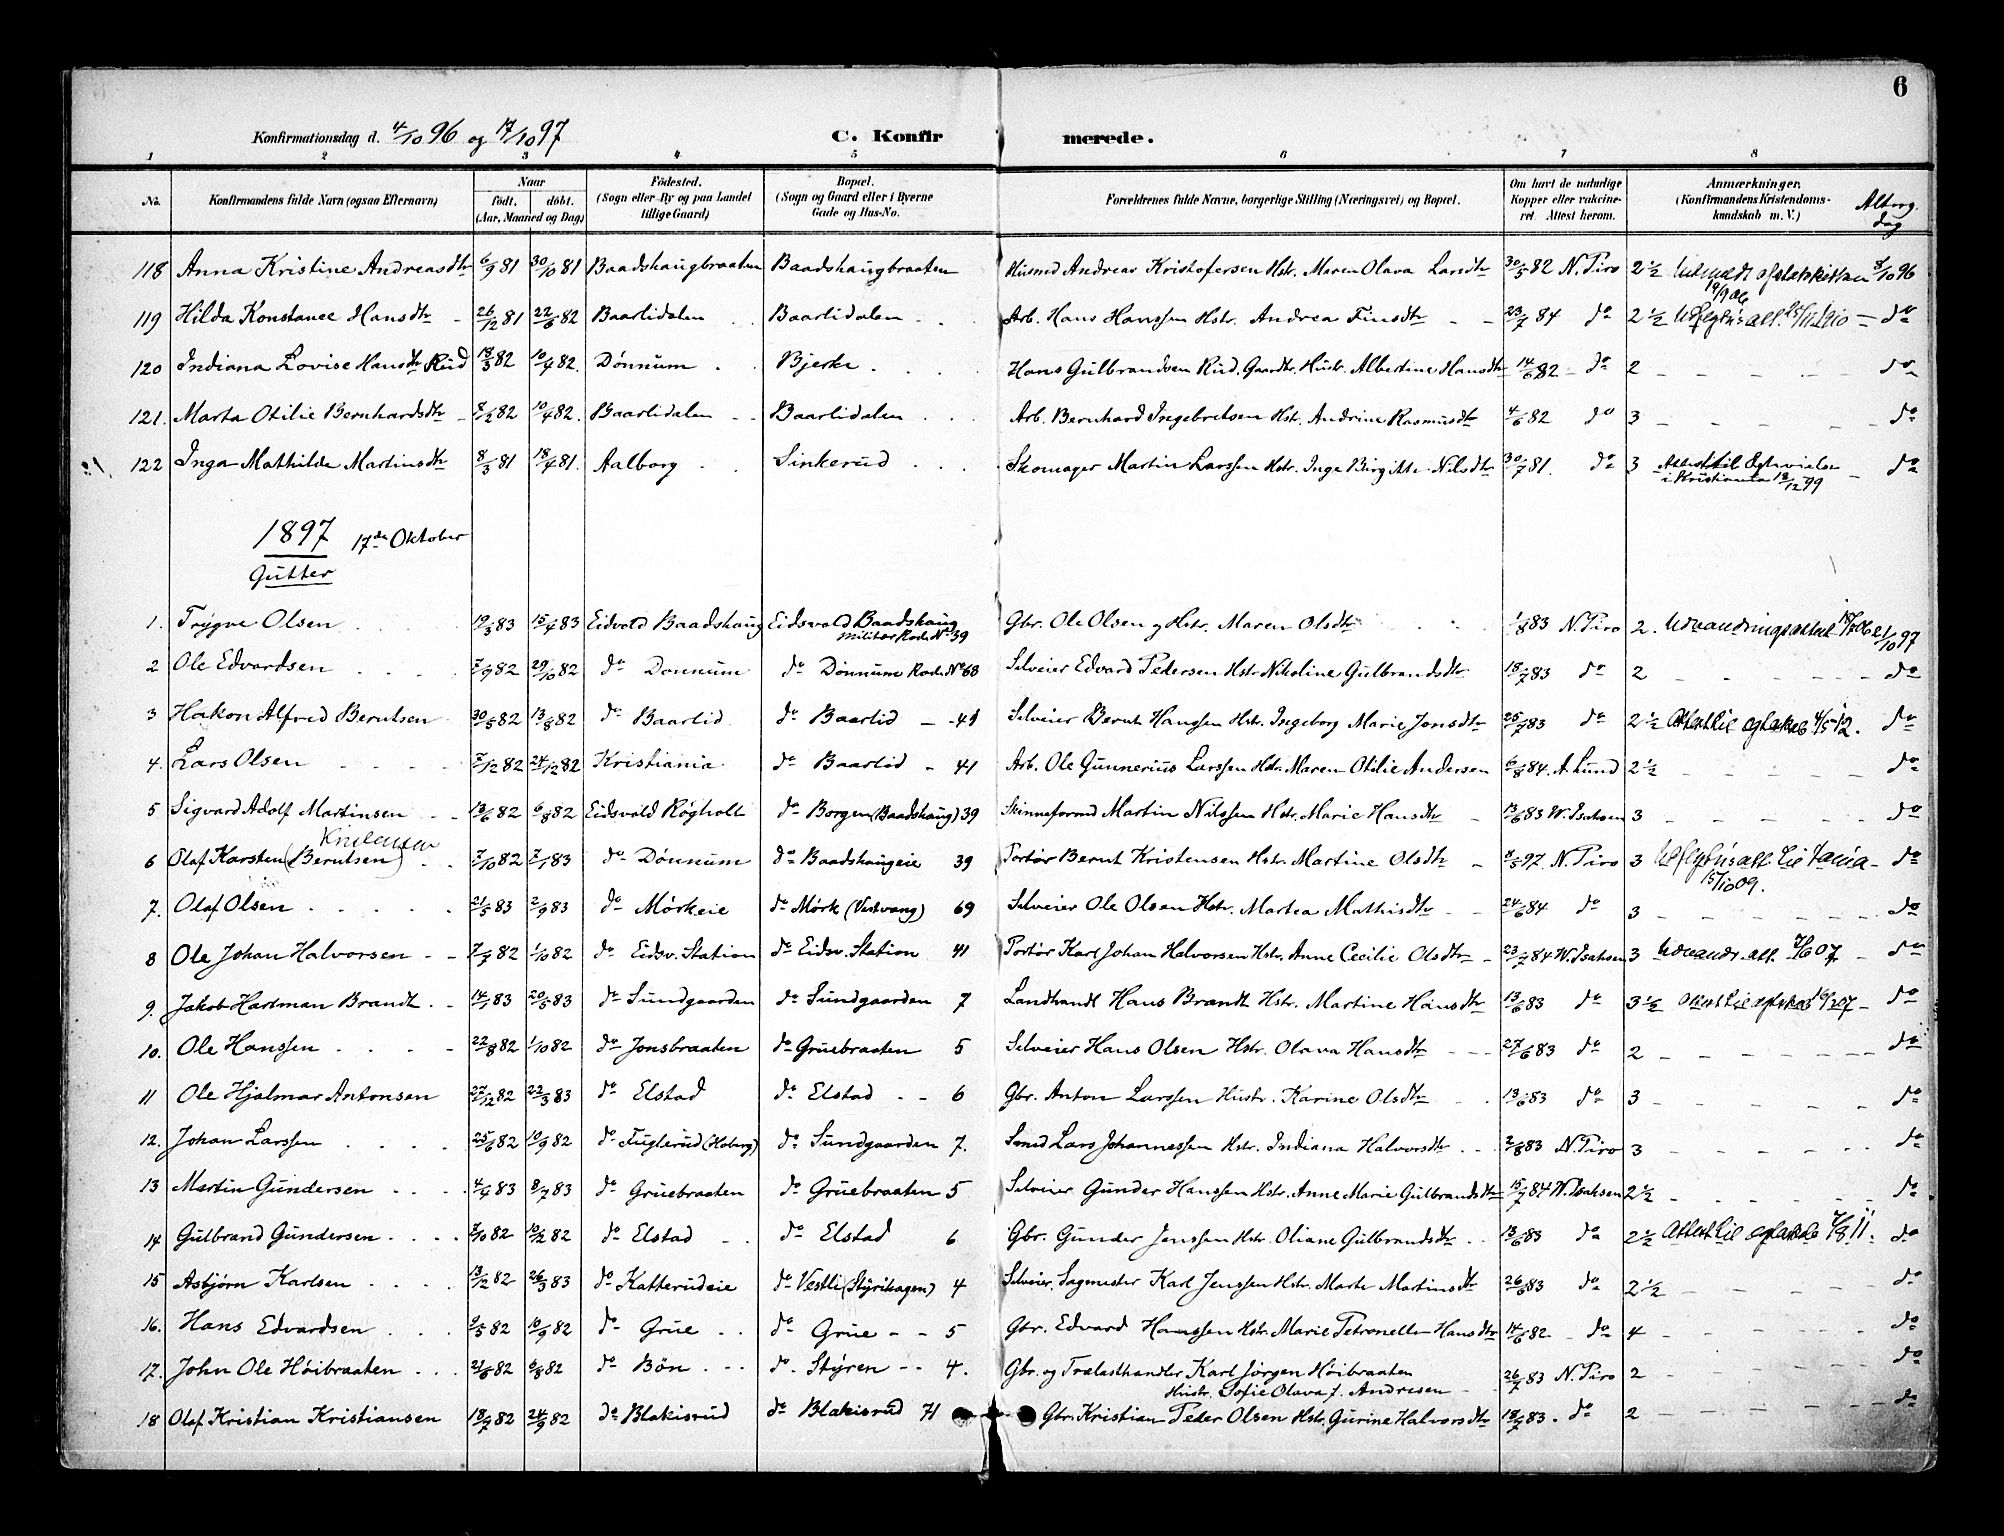 6
Konfirmationsdag d. 4/10 96 og 17/10 97 C. Konfirmerede.
1 2 3 4 5 6 7 8
No. Konfirmandens fulde Navn (ogsaa Efternavn) Naar født. døbt. (Aar, Maaned og Dag) Fødested. (Sogn eller By og paa Landet tillige Gaard) Bopæl. (Sogn og Gaard eller i Byerne Gade og Hus-No. Forældrenes fulde Navne, borgerlige Stilling (Næringsvei) og Bopæl. Om havt de naturlige Kopper eller vakcineret. Attest herom. Anmærkninger. (Konfirmandens Kristendomskundskab m. V.) dag
118 Anna Kristine Andreasdtr 6/9 81 30/10 81 Baadshaugbraaten Baadshaugbraaten Husmd Andreas Kristofersen Hstr. Maren Olava Larsdtr 30/5 82 N. Tiro 2 1/2 4/10 96
119 Hilda Konstance Hansdtr 26/12 81 22/6 82 Baarlidalen Baarlidalen Arb. Hans Hanssen Hstr. Andrea Finsdtr 23/7 84 do 2 1/2 Udflytn's att. 25/11 1910 do
120 Indiana Lovise Hansdtr Rud 18/3 82 10/4 82. Dønnum Bjerke Hans Gulbrandsen Rud. Gaardbr. Hustr. Albertine Hansdtr 14/6 82 do 2 do
121. Marta Otilie Bernhardsdtr 8/2 82 10/4 82. Baarlidalen Baarlidalen Arb. Bernhard Ingebretsen Hstr. Andrine Rasmusdtr 4/6 82 do 3 do
122 Inga Mathilde Martinsdtr 8/3 81 18/4 81. Aalborg Sinkerud Skomager Martin Larssen Hstr. Inga Birgitte Nilsdtr 30/7 81. do 3 Attest til
i Kristiania 12/12 99 do
1897 17de Oktober
Gutter
1. Trygve Olsen 19/3 83 15/4 83 Eidsvold Baadshaug Eidsvold Baadshaug militær Rode No 39 Gbr. Ole Olsen og Hstr. Maren Olsdtr 1/8 83 N. Tiro 2. Udvandringsattest 21/10 97
2 Ole Edvardsen 7/9 82 29/10 82 do Donnum do Dönnum Rode No 68 Selveier Edvard Pedersen Hstr Nikoline Gulbrandsdtr 18/7 83 do 2 do
3 Hakon Alfred Berntsen 30/5 82 13/8 82 do Baarlid do Baarlid 41 Selveier Bernt Hanssen Hstr. Ingeborg Marie Jensdtr 25/7 83 do 2 1/2 Attest til 4/5 12. do
4. Lars Olsen 7/12 82 24/12 82 Kristiania do Baarlid 41 Arb. Ole Gunnerius Larssen Hstr. Maren Otilie Andersen 6/8 84. A. Lund 2 1/2 do
5 Sigvard Adolf Martinsen 13/6 82 6/8 82 Eidsvold Røgholt do Borgen (Baadshaug) 39 Martin Nilssen Hstr. Marie Hansdtr 13/6 83 W. Isachsen 3 do
6 Olaf Karsten (Berntsen) Kristensen 7/10 82 7/1 83 do Dönnum do Baadshaugeie 39 Portör Bernt Kristensen Hstr. Martine Olsdtr 97. N. Tiro 3 Udflytn's att. til do
15/10 09.
7. Olaf Olsen 21/5 83 2/9 83 do Mörkeie do Mörk (Vestvang) 69 Selveier Ole Olsen Hstr. Martea Mathisdtr 24/6 84 do 3 do
8 Ole Johan Halvorsen 7/7 82 1/10 82 do Eidsv. Station do Eidsv. Station 41 Portör Karl Johan Halvorsen Hstr. Anne Cecilie Olsdtr 23/7 84 W. Isachsen 3 Udvandr. att. 7/6 07. do
9. Jakob Hartman Brandt 14/1 83 20/5 83 do Sundgaarden do Sundgaarden 7 Landhandl Hans Brandt Hstr. Martine Hansdtr 13/6 83 do 3 1/2 do
10. Ole Hanssen 22/8 82 1/10 82 do Jonsbraaten do Gruebraaten 5 Selveier Hans Olsen Hstr. Olava Hansdtr 27/6 83 do 2 do
11 Ole Hjalmar Antonsen 27/12 82 22/3 83 do Elstad do Elstad 6 Gbr. Anton Larssen Hustr. Karine Olsdtr 13/6 83 do 3 do
12. Johan Larssen 25/6 82 10/9 82 do Fuglerud (Hoberg) do Sundgaarden 7. Smed Lars Johannessen Hstr. Indiana Halvorsdtr 2/8 83 N. Tiro 3 do
13 Martin Gundersen 4/4 83 8/7 83 do Gruebraaten do Gruebraaten 5 Selveier Gunder Hanssen Hstr. Anne Marie Gulbrandsdtr 15/7 84 W. Isachsen 2 1/2 do
14 Gulbrand Gundersen 7/10 82 10/12 82 do Elstad do Elstad 6 Gbr. Gunder Jenssen Hstr. Oliane Gulbrandsdtr 13/6 83 do 2 1/2 Attest til do
15 Asbjørn Karlsen 13/12 82 26/3 83 do Katterudeie do Vestli (Styrihagen) 4 Selveier Sagmester Karl Jenssen Hstr. Marte Martinsdtr 26/6 83 do 2 1/2 do
16. Hans Edvardsen 9/5 82 10/9 82 do Grue do Grue 5 Gbr. Edvard Hanssen Hstr. Marie Petronelle Hansdtr 14/6 82 do 4 do
17. John Ole Höibraaten 21/6 82 6/8 82 do Bön do Styren 4. Gbr. og Trælasthandler Karl Jörgen Höibraaten
Hustr. Sofie Olava f. Andresen 26/7 83 N. Tiro 2 do
18 Olaf Kristian Kristiansen 18/7 82 24/9 82 do Blakisrud do Blakisrud 71 Gbr. Kristian Peder Olsen Hstr. Gurine Halvorsdtr 18/7 83. do 2 do